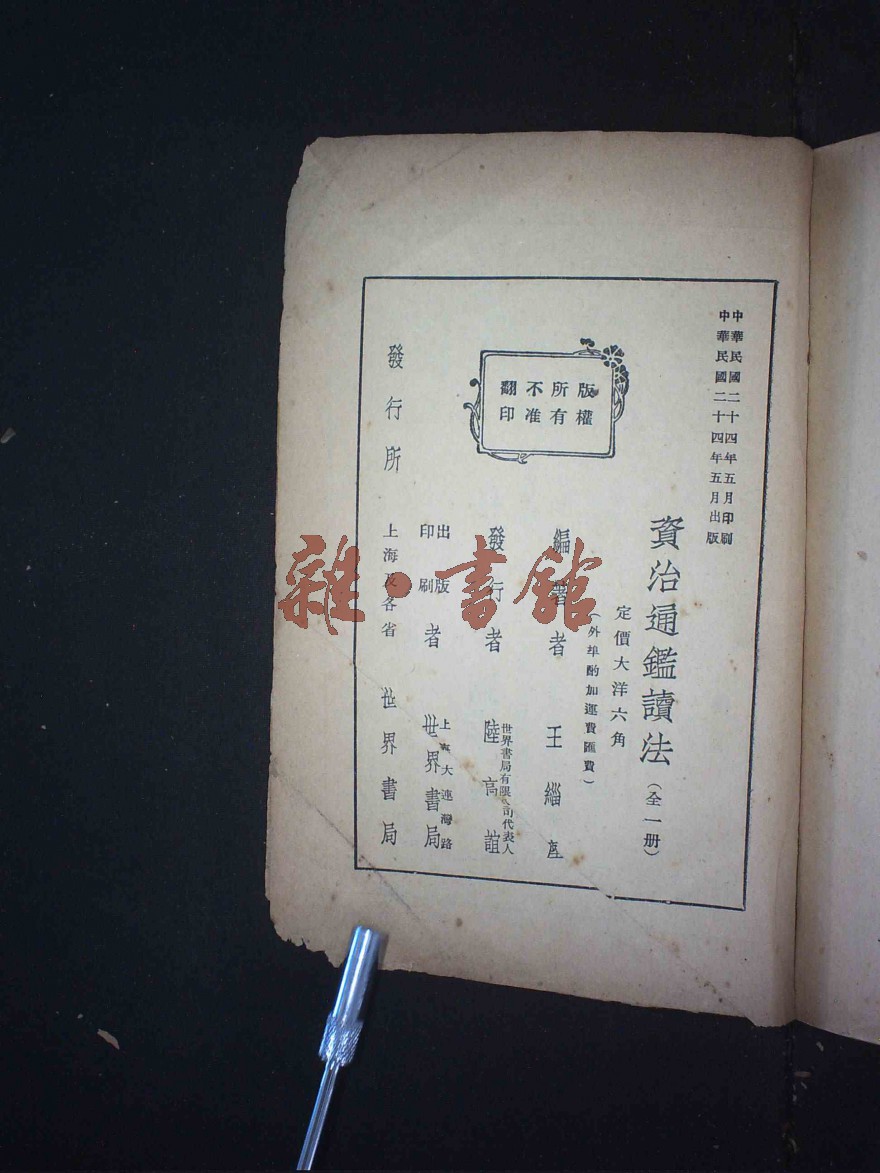 中華民國二十四年五月印刷
中華民國二十四年五月出版
資治通鑑讀法(全一册)
定價大洋六角
(外埠酌加運費匯費)
版權
所有
不准
翻印
編著者 王緇塵
發行者 世界書局有限公司代表人 陸高誼
出版
印刷
者 上海大連灣路
世界書局
發行所 上海及各省 世界書局
雜·書館